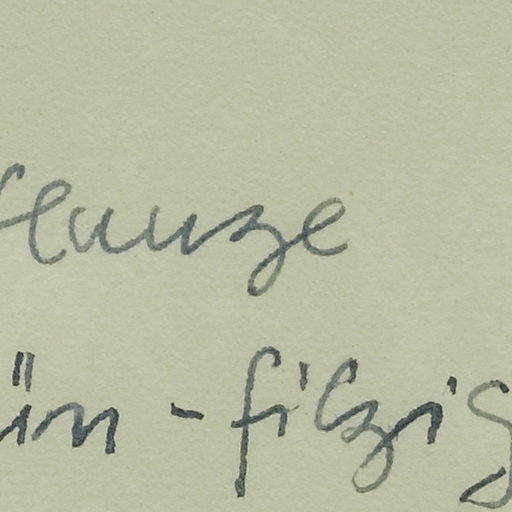 flanze
ün - filzig